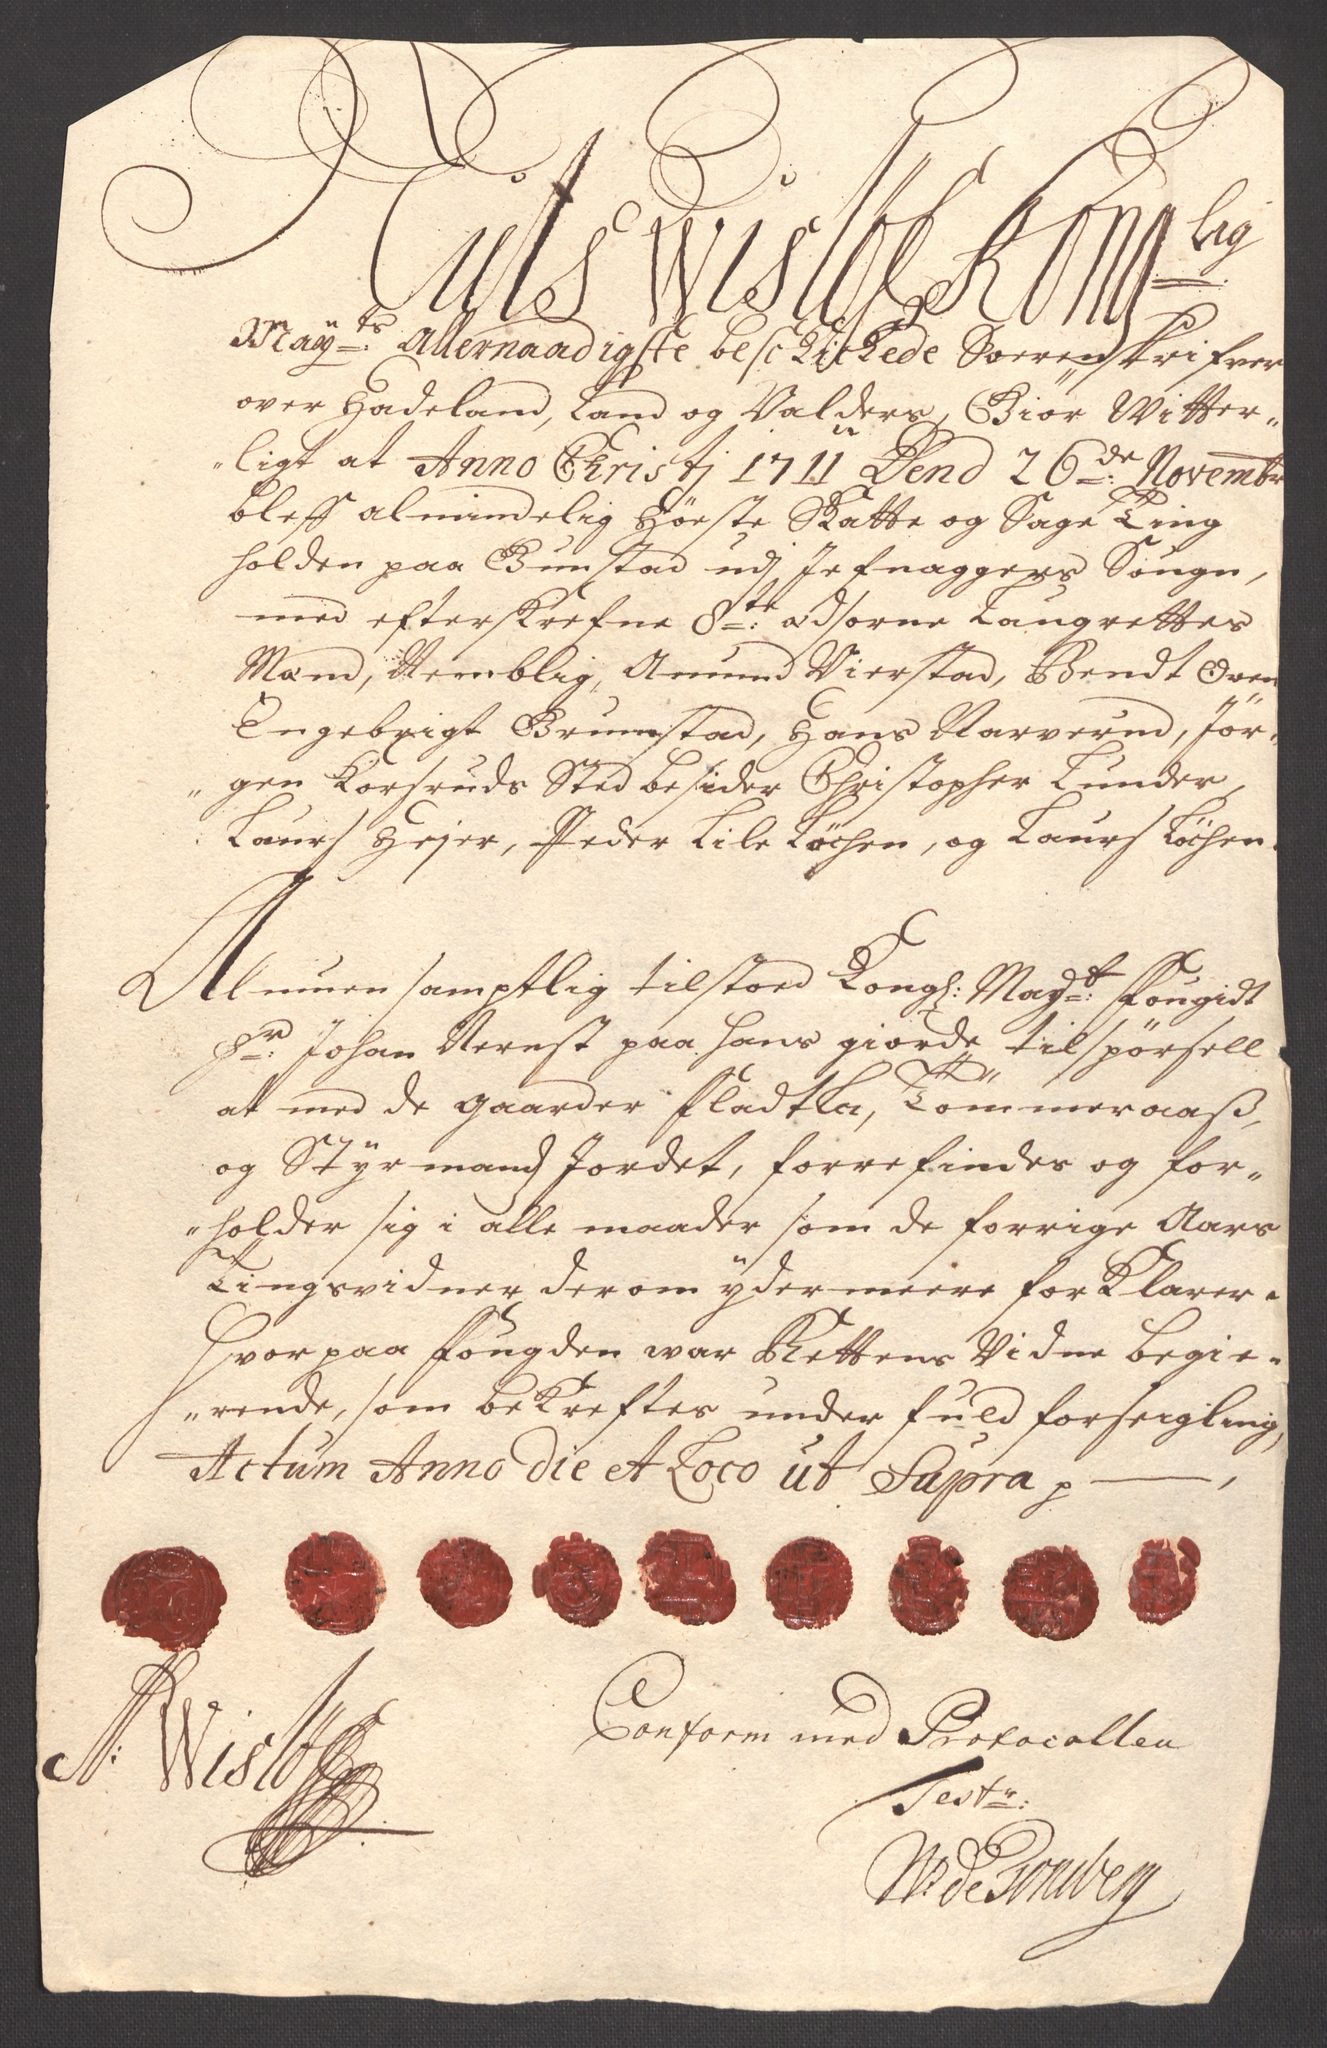 Niels Wisløf Konglig
Mayts: Allernaadigste beschickede Sorenskrifver
over Hadeland, Land og Valders, Giør Witter-
ligt at Anno Christj 1711 Dend 26de: Novembr
bleff almindelig Høste Skatte og Sage Ting
holden paa Gunstad udj Jefnaggers Sougn,
med efterskrefne 8te: ædsorne Laugrettes
Mænd, Nemblig, Amund Vierstad, Bendt Øren
Engebrigt Brunstad, Hans Narverud, Jør-
gen Korsruds Sted besider Christopher Lunder,
Laurs Hejer, Peder Lile Løchen, og Laurs Løchen.
Almuen samptlig tilstoed Kongl: Mayts: Fougidt
Sr: Johan Rernst paa hans giorde tilspørsell
at med de gaarder Fladtla, Tommeraaß,
og Styrmandsjordet, forrefindes og for-
holder sig i alle maader som de forrige Aars
Tingsvidner derom ydermeere forklarer.
Hvorpaa Fougden war Rettens Vidne begie-
rende, som bekreftes under fuld forseigling,
Actum Anno die et Loco ut Supra p
N: Wisløf
Conform med Protocollen
Test: